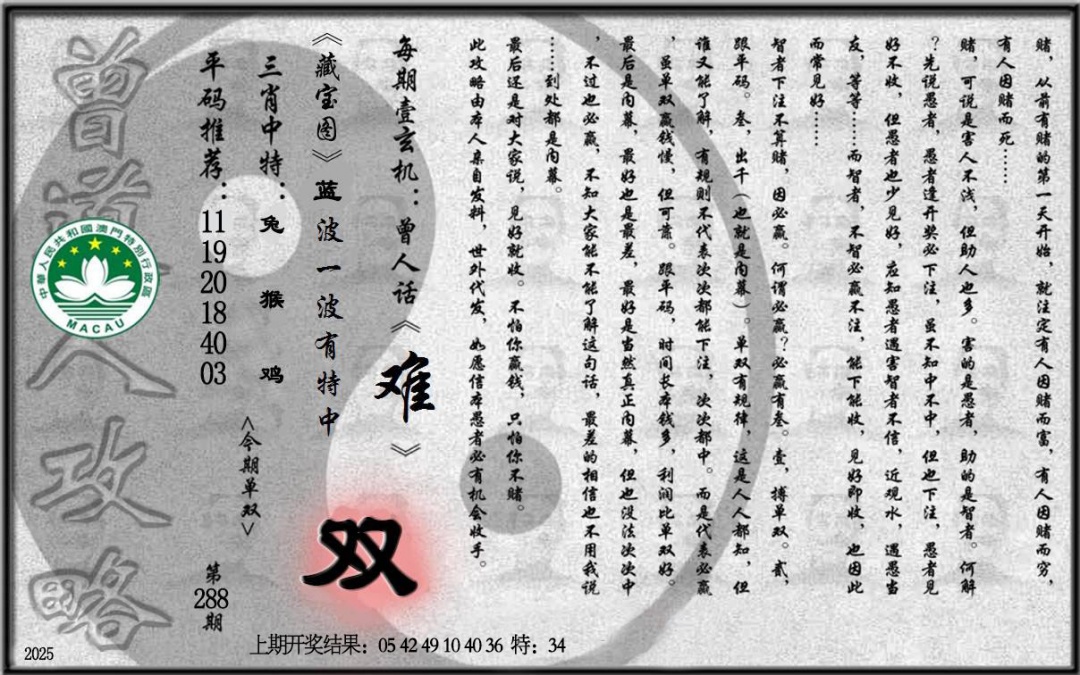 赌，从前有赌的第一天开始，就注定有人因赌而富，有人因赌而穷，
有人因赌而死……
赌，可说是害人不浅，但助人也多。害的是愚者，助的是智者。何解
？先说愚者，愚者逢开奖必下注，虽不知中不中，但也下注，愚者见
好不收，但愚者也少见好，应知愚者遇害智者不信，近观水，遇愚当
友，等等……而智者，不智必赢不注，能下能收，见好即收，也因此
而常见好……
智者下注不算赌，因必赢。何谓必赢？必赢有叁。壹，搏单双。贰，
跟平码。叁，出千（也就是内幕）。单双有规律，这是人人都知，但
谁又能了解，有规则不代表次次都能下注，次次都中。而是代表必赢
，虽单双赢钱慢，但可靠。跟平码，时间长本钱多，利润比单双好。
最后是内幕，最好也是最差，最好是当然真正内幕，但也没法次次中
，不过也必赢，不知大家能不能了解这句话，最差的相信也不用我说
……到处都是内幕。
最后还是对大家说，见好就收。不怕你赢钱，只怕你不赌。
此攻略由本人亲自发料，世外代发，如愿信本愚者必有机会收手。
每期壹玄机：曾人话《难》
《藏宝图》蓝波一波有特中
双
三肖中特：兔 猴 鸡
<今期单双>
平码推荐：11 19 20 18 40 03
第288期
曾道人攻略
中華人民共和國澳門特別行政區
MACAU
2025
上期开奖结果：05 42 49 10 40 36 特：34